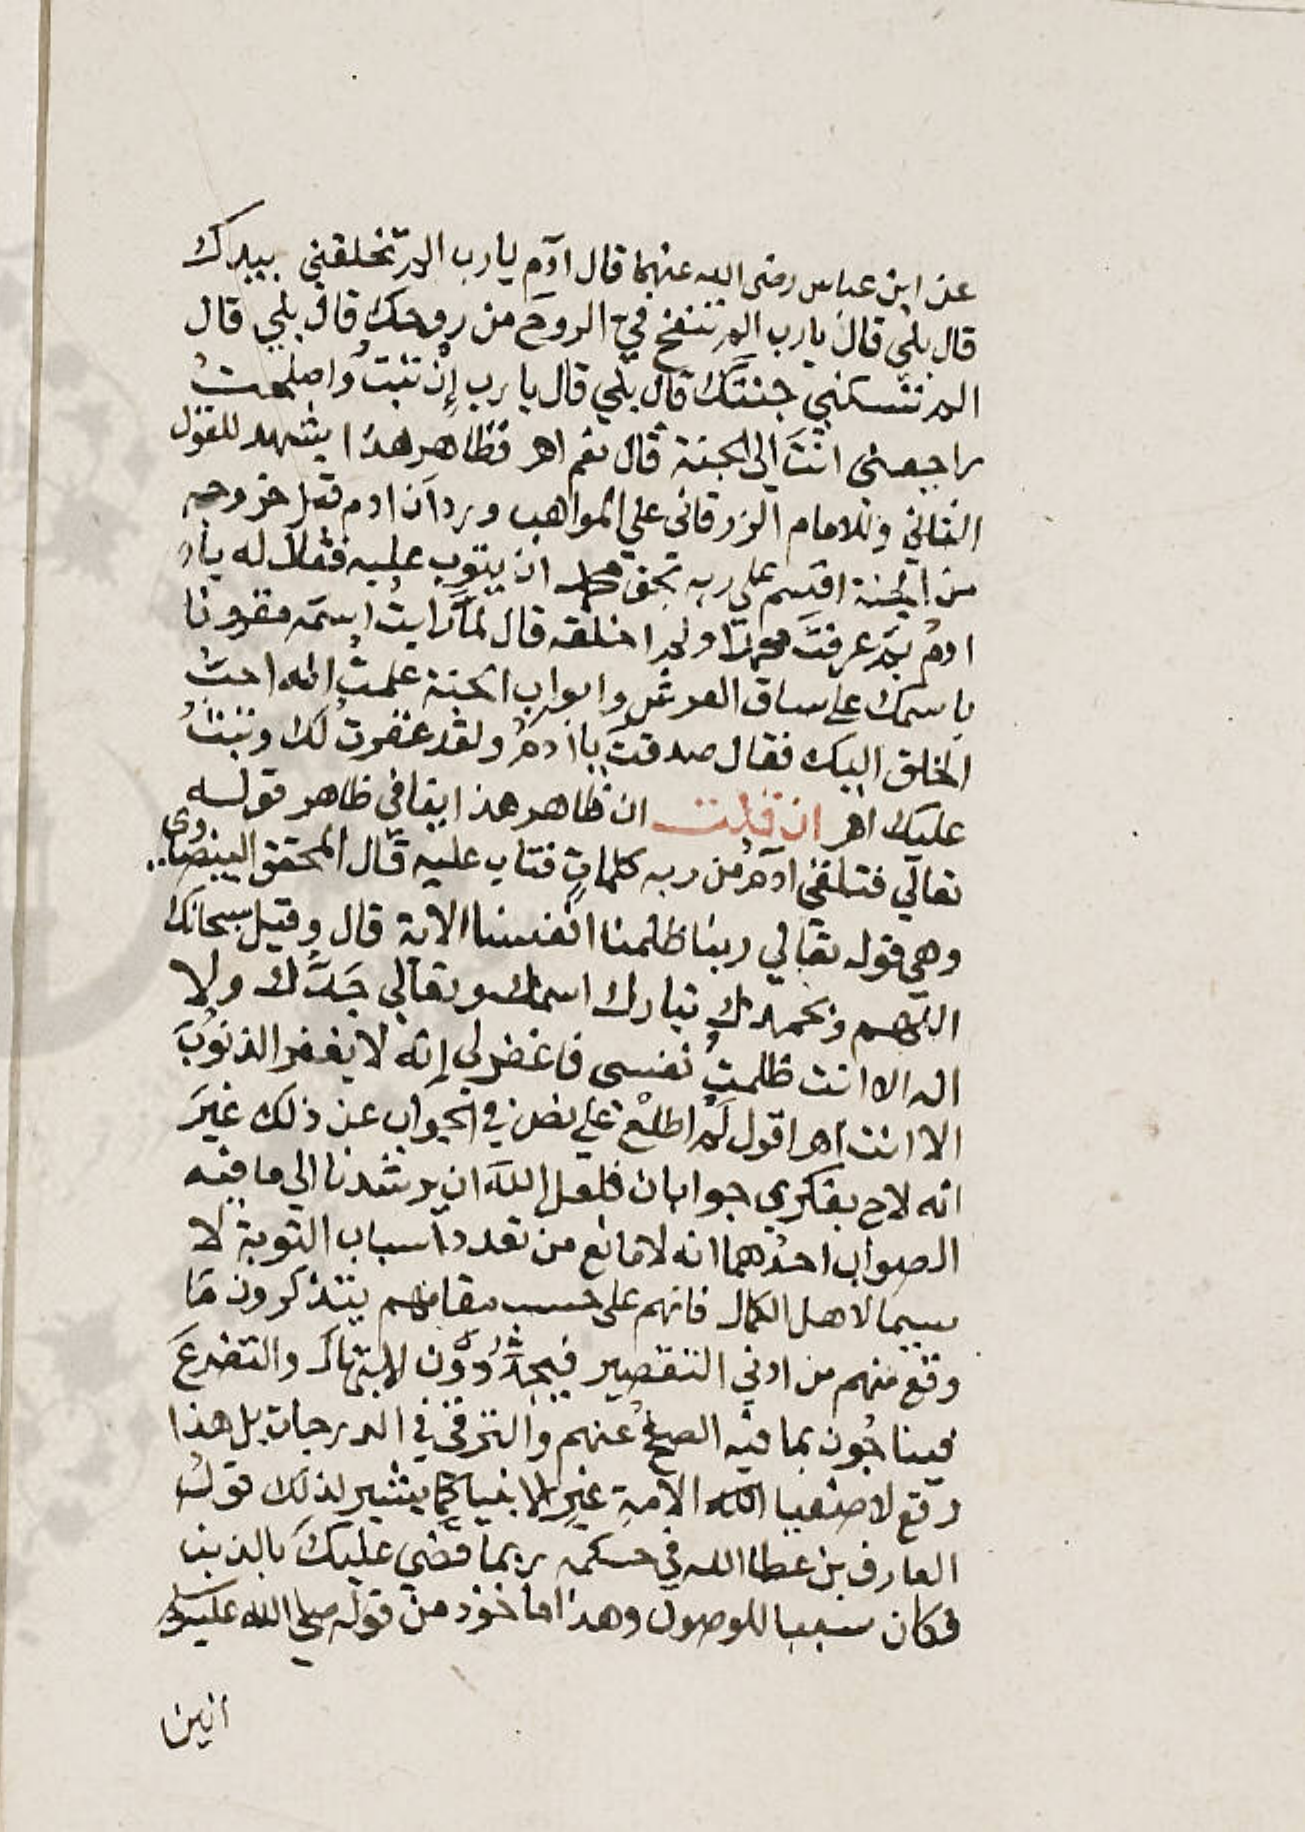 عن ابن عباس رضى الله عنهما قال ادٓم يارب الم تخلقني بيدك
قال بلي قال يارب الم تنفخ فيَّ الروحَ من روحك قال بلي قال
الم تسكني جنتَك قال بلي قال يا رب إِنْ تبتُ واصلحتُ
راجعنى انتَ الى الجنة قال نعم اهر فظاهر هذا يشهد للقول
الثاني وللامام الزرقانى علي المواهب ويرد ان ادم قبل خروجه
من الجنة اقسم على ربه بحق محمد ان يتوب عليه فقال له يا
ادمُ بمَ عرفتَ محمدا ولم اخلقه قال لمَّا رايتُ اسمَه مقرونا
باسمك على ساق العرش وابواب الجنة علمتُ انه احبُّ
الخلق اليك فقال صدقتَ يا ادمُ ولقد غفرتُ لك وتبتُ
عليك اهر ان قلت ان ظاهر هذا ينافى ظاهر قوله
تعالي فتلقى ادٓمُ من ربه كلماتٍ فتاب عليه قال المحقق البيضاوى
وهي قوله تعالي ربنا ظلمنا انفسنا الاية قال وقيل سبحانك
اللهم وبحمدك تبارك اسمك وتعالى جَدُّك ولا
اله الا انت ظلمتُ نفسى فاغفر لى إنه لا يغفر الذنوبَ
الا انت اهر اقول لَمْ اطلعْ على نص فى الجواب عن ذلك غيرَ
انه لاح بفكرى جوابان فلعل اللهَ ان يرشدنا الى ما فيه
الصواب احدُهما انه لا مانع من تعدد اسباب التوبة لا
سيما لاهل الكمال فانهم على حسب مقامهم يتذكرون ما
وقع منهم من ادنى التقصير فيجدِّدون الابتهال والتضرعَ
فيناجُون بما فيه الصفحُ عنهم والترقى في الدرجات بل هذا
وقع لاصفيا الله الامةِ غيرِ الانبيا كما يشير لذلك قولُ
العارف بن عطا الله في حكمه ربما قضى عليكَ بالذنب
فكان سببا للوصول وهذا ماخوذ من قوله صلى الله عليه وسلم
انين